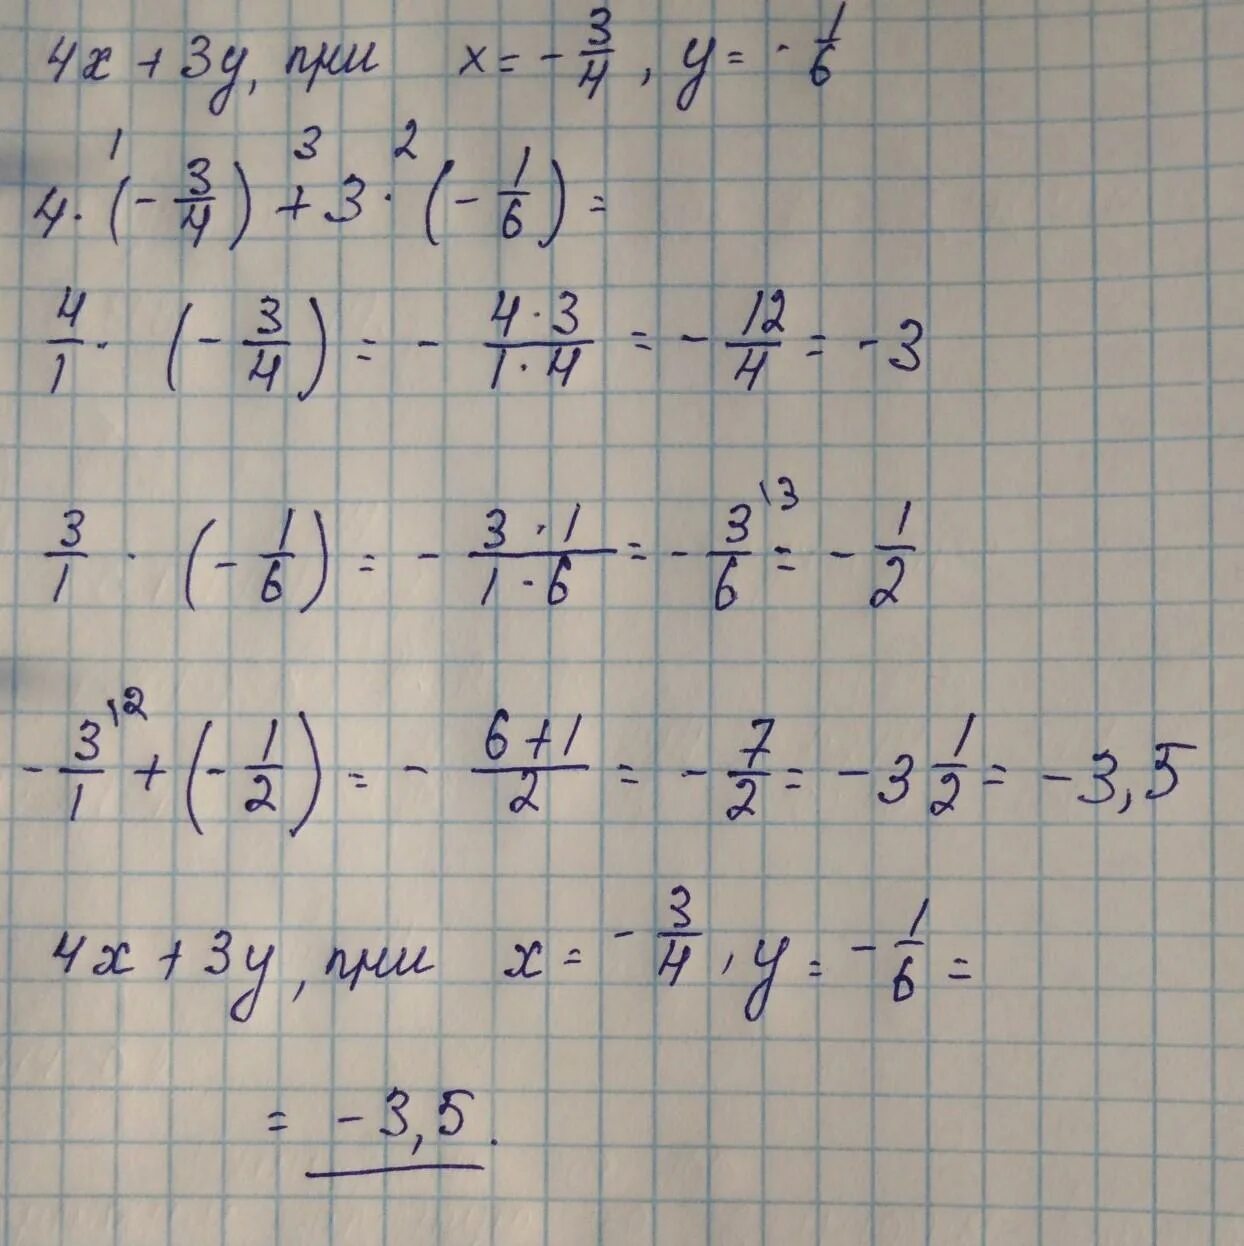 4x + 3y, при x = - 3/4, y = - 1/6
1 3 2
4 · (- 3/4) + 3 · (- 1/6) =
4/1 · (- 3/4) = - 4·3/1·4 = - 12/4 = -3
3/1 · (- 1/6) = - 3·1/1·6 = - 3/6 ^{13} = - 1/2
- 3/1 ^{12} + (- 1/2) = - 6+1/2 = - 7/2 = -3 1/2 = -3,5
4x + 3y, при x = - 3/4, y = - 1/6 =
= -3,5.